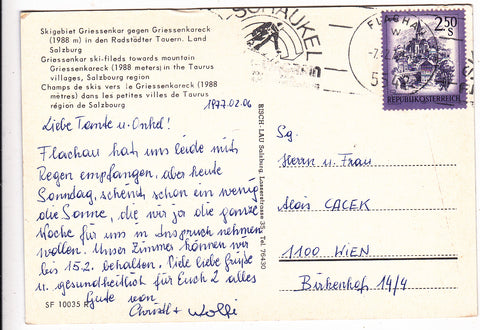 Skigebiet Griessenkar gegen Griessenkareck
(1988 m) in den Radstädter Tauern. Land
Salzburg
Griessenkar ski-fileds towards mountain
Griessenkareck (1988 meters) in the Taurus
villages, Salzbourg region
Champs de skis vers le Griessenkareck (1988
mètres) dans les petites villes de Taurus
région de Salzbourg
1977.02.06
Liebe Tante u. Onkel!
Flachau hat uns leide mit
Regen empfangen, aber heute
Sonntag, scheint schon ein wenig
die Sonne, die wir ja die ganze
Woche für uns in Anspruch nehmen
wollen. Unser Zimmer können wir
bis 15.2. behalten. Viele liebe Grüße
u. gesundheitlich für Euch 2 alles
Gute von
Christl + Wolfi
SF 10035 R
RISCH-LAU Salzburg, Lasserstrasse 35, Tel. 76430
SCHAUKEL
FLACHAU
2.50
S
REPUBLIK ÖSTERREICH
Sg.
Herrn u. Frau
Alois CACEK
1100 WIEN
Birkenhof 14/4